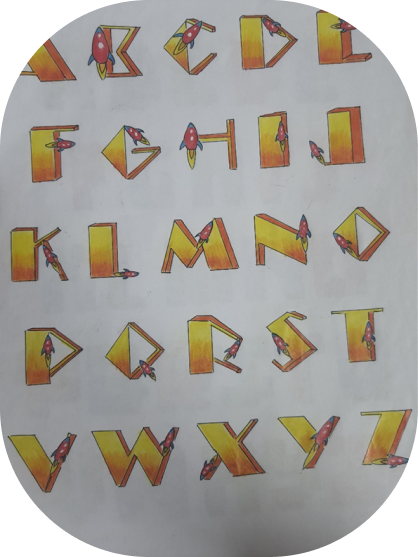 A B C D E
F G H I J
K L M N O
P Q R S T
V W X Y Z